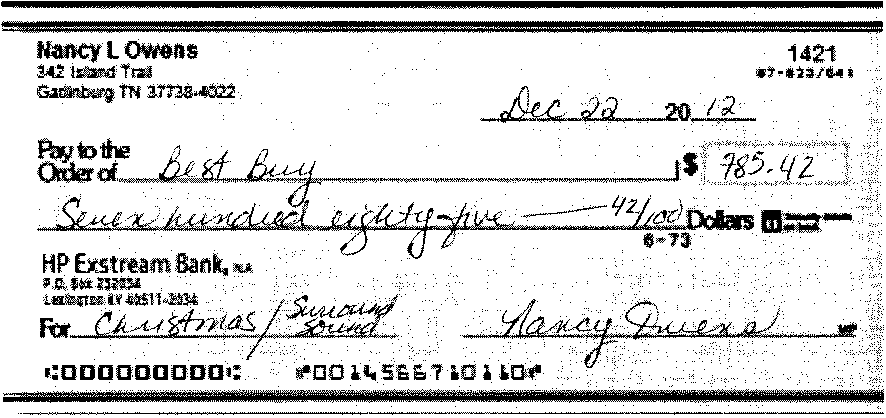 Nancy L Owens
1421
342 Island Trail
Gatlinburg TN 37738-4022
Dec 22 2012
Pay to the
Order of Best Buy $ 785.42
Seven hundred eighty-five — 42/100 Dollars
6-73
HP Exstream Bank, N.A.
P.O. Box 232034
Lexington KY 40511-2034
For Christmas/Surround Sound Nancy Owens MP
⑆000000000⑆ ⑈001456671011⑈